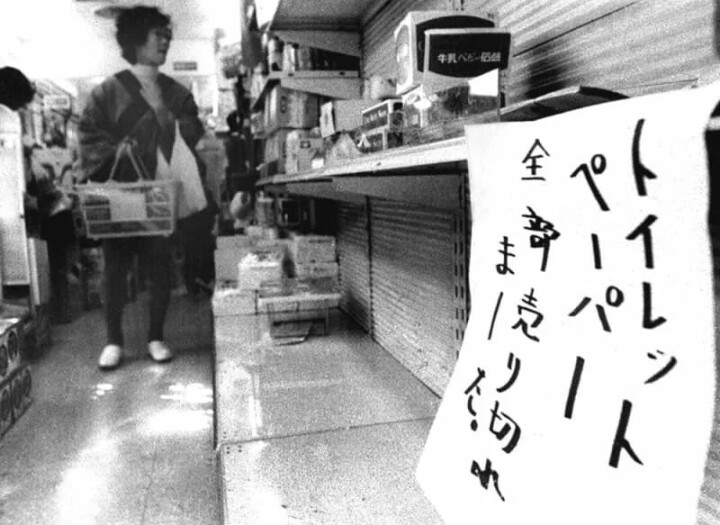 牛乳ベビー石鹸
トイレット
ペーパー
全部売り切れ
ました